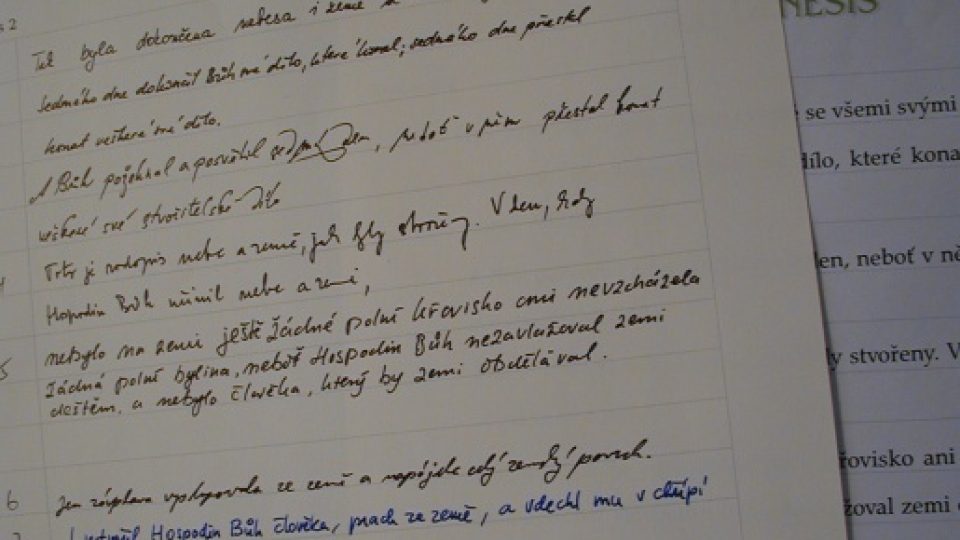 2
Tak byla dokončena nebesa i země a
Sedmého dne dokončil Bůh své dílo, které konal; sedmého dne přestal
konat veškeré své dílo.
A Bůh požehnal a posvětil sedmý den, neboť v něm přestal konat
veškeré své stvořitelské dílo
4
Toto je rodopis nebe a země, jak byly stvořeny. V den, kdy
Hospodin Bůh učinil nebe a zemi,
5
nebylo na zemi ještě žádné polní křovisko ani nevzcházela
žádná polní bylina, neboť Hospodin Bůh nezavlažoval zemi
deštěm, a nebylo člověka, který by zemi obdělával.
6
Jen záplava vystupovala ze země a napájela celý zemský povrch.
I vytvořil Hospodin Bůh člověka, prach ze země, a vdechl mu v chřípí
NESIS
se všemi svými
dílo, které kona
en, neboť v ně
y stvořeny. V
řovisko ani
žoval zemi